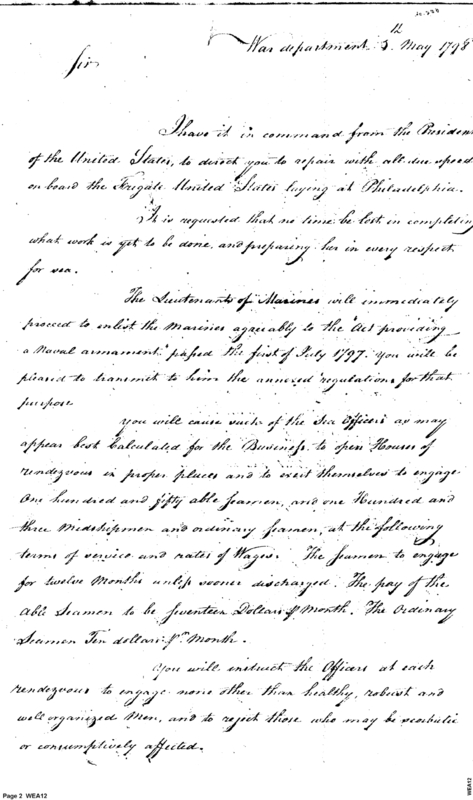 12
War department 5 May 1798
Sir
I have it in command from the President
of the United States, to direct you to repair with all due speed
on board the Frigate United States laying at Philadelphia.
It is requested that no time be lost in completing
what work is yet to be done, and preparing her in every respect
for sea.
The Lieutenants of Marines will immediately
proceed to enlist the Marines agreably to the "Act providing
a Naval armament" passed the first of July 1797. you will be
pleased to transmit to him the annexed regulations for that
purpose
you will cause such of the Sea Officers as may
appear best Calculated for the Business to open Houses of
rendezvous in proper places and to exert themselves to engage
One hundred and fifty able Seamen, and one Hundred and
three Midshipmen and ordinary Seamen, at the following
terms of service and rates of Wages. The Seamen to engage
for twelve Months unless sooner discharged. The pay of the
able Seamen to be Seventeen Dollars Pr Month. The Ordinary
Seamen Ten dollars Pr Month.
You will instruct the Officers at each
rendezvous to engage none other than healthy, robust and
well organized Men, and to reject those who may be scorbutic
or consumptively affected.
Page 2 WEA12
WEA12